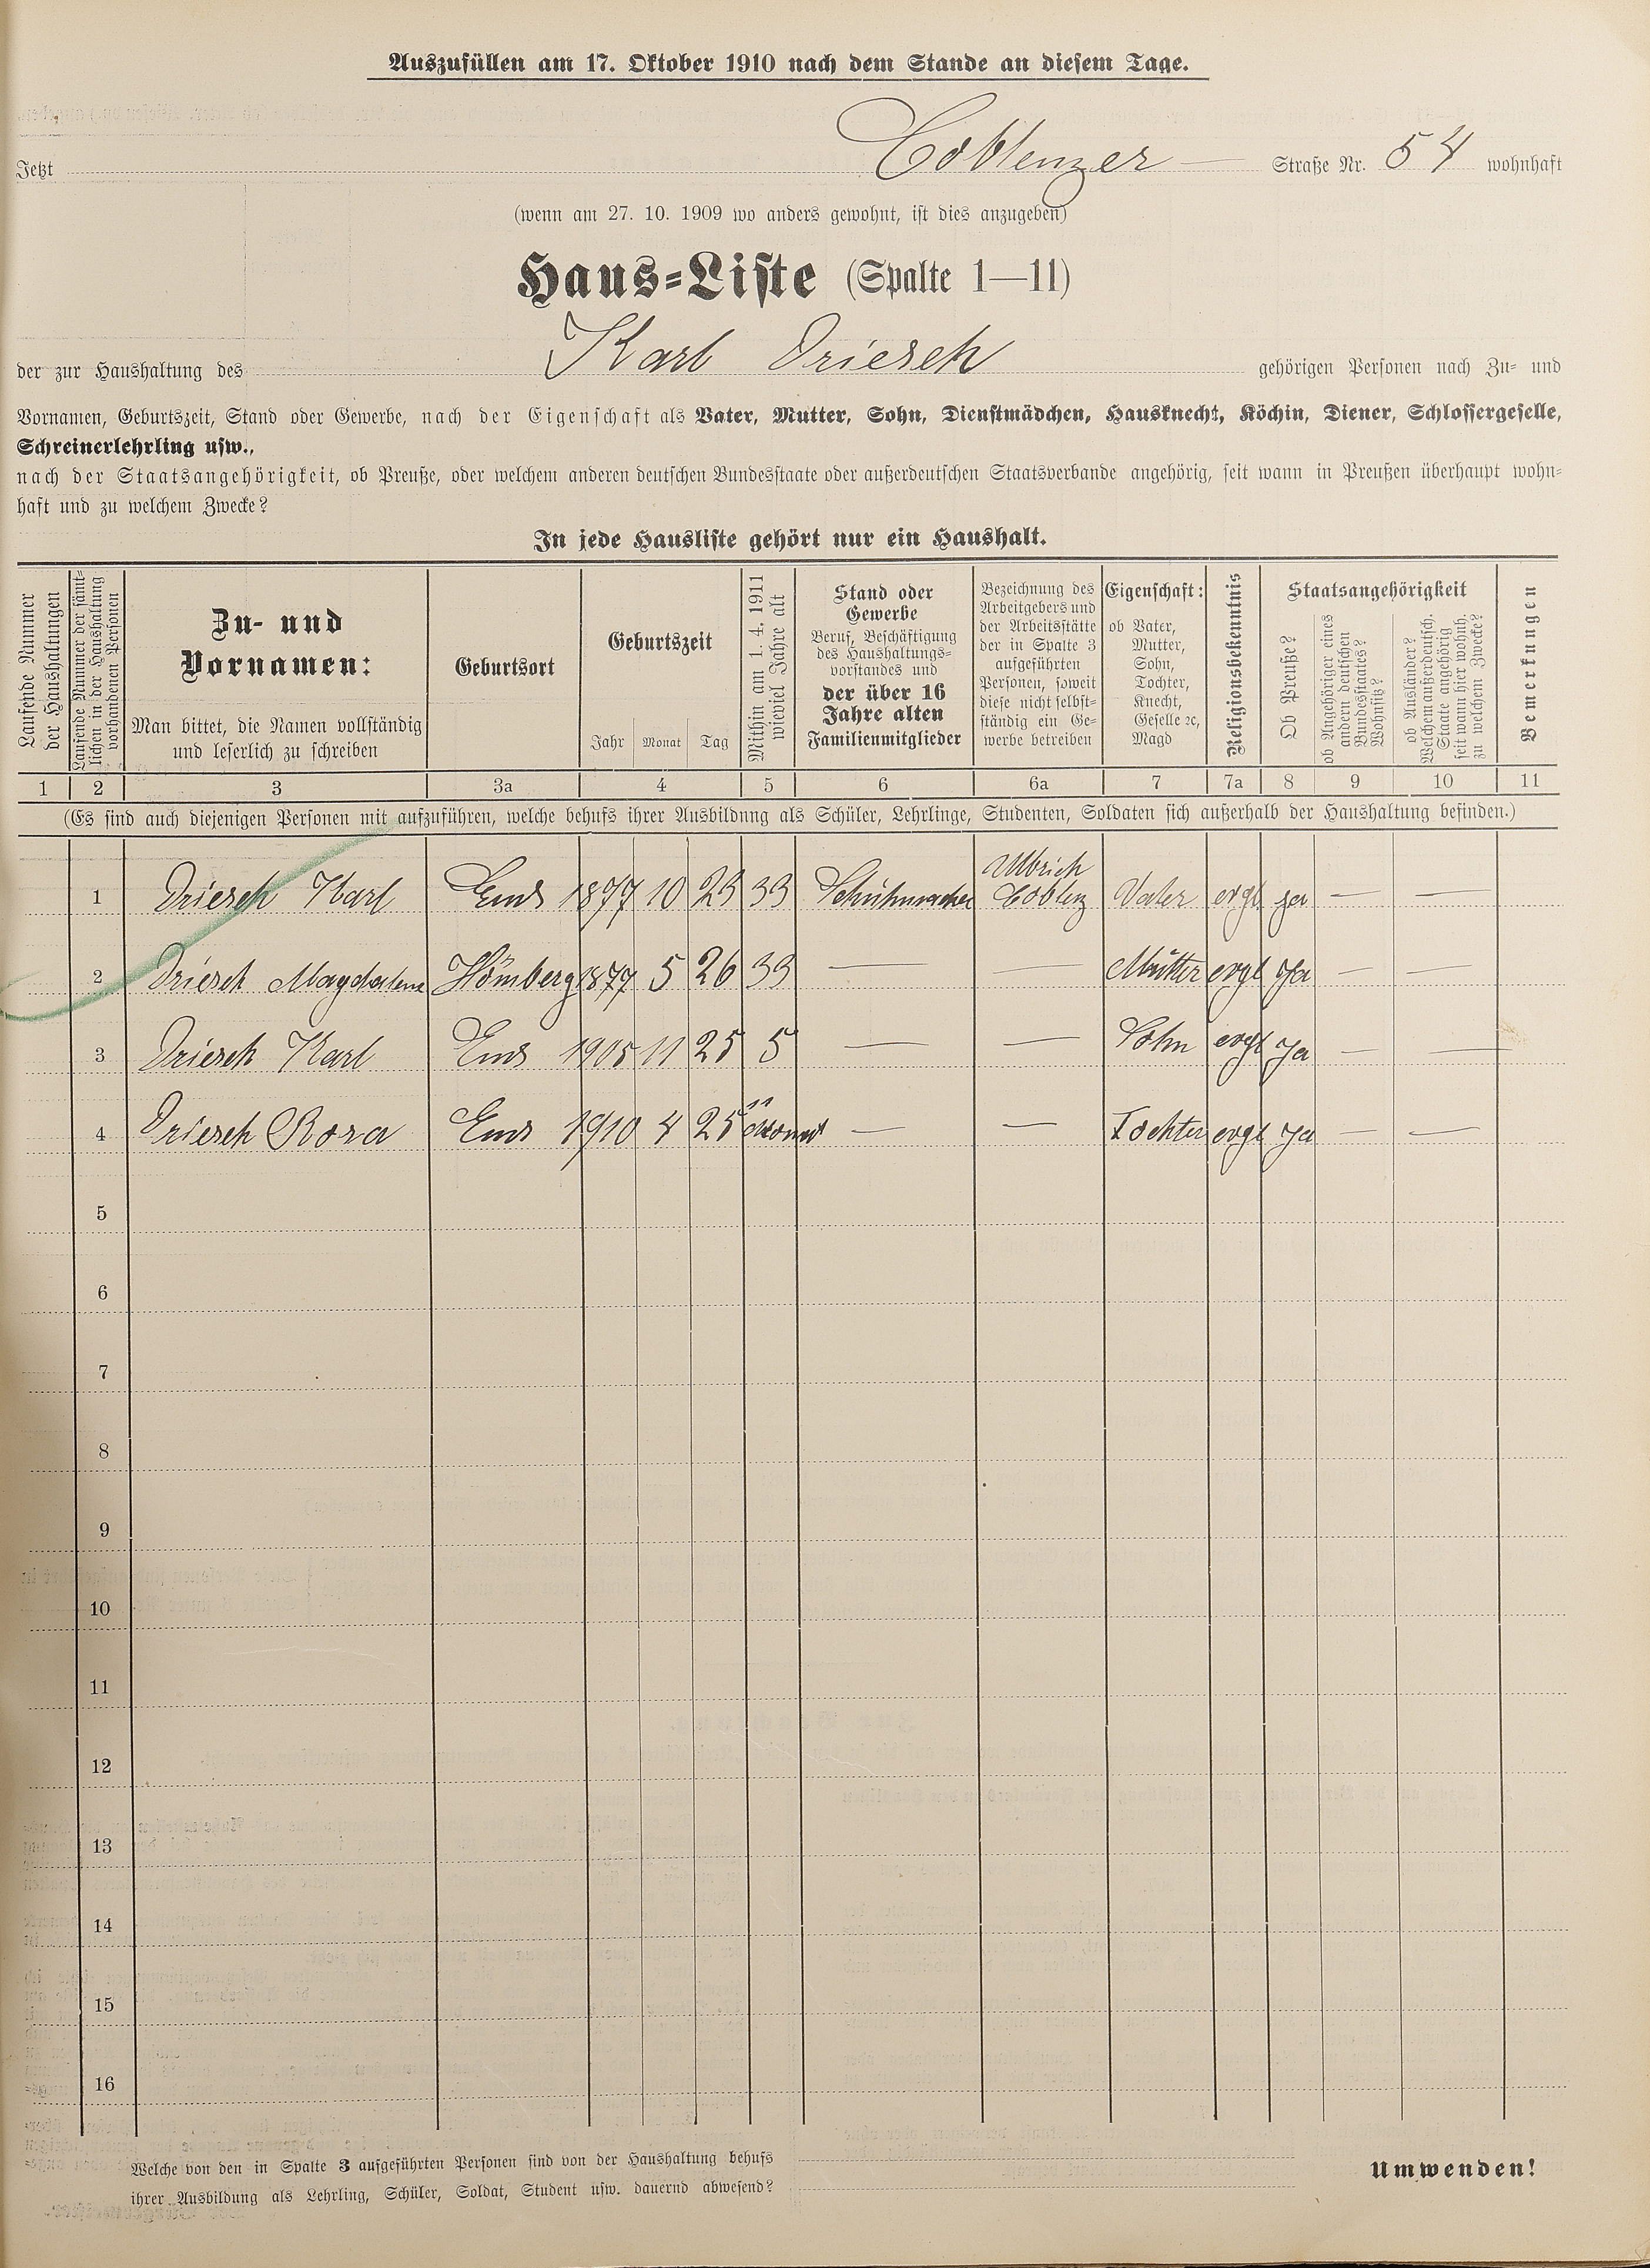 Auszufüllen am 17. Oktober 1910 nach dem Stande an diesem Tage.
Jetzt Coblenzer — Straße Nr. 54 wohnhaft
(wenn am 27. 10. 1909 wo anders gewohnt, ist dies anzugeben)
Haus-Liste (Spalte 1—11)
der zur Haushaltung des Karl Driesch gehörigen Personen nach Zu- und
Vornamen, Geburtszeit, Stand oder Gewerbe, nach der Eigenschaft als Vater, Mutter, Sohn, Dienstmädchen, Hausknecht, Köchin, Diener, Schlossergeselle,
Schreinerlehrling usw.,
nach der Staatsangehörigkeit, ob Preuße, oder welchem anderen deutschen Bundesstaate oder außerdeutschen Staatsverbande angehörig, seit wann in Preußen überhaupt wohn-
haft und zu welchem Zwecke?
In jede Hausliste gehört nur ein Haushalt.
Laufende Nummer
der Haushaltungen
Laufende Nummer der sämt-
lichen in der Haushaltung
vorhandenen Personen
Zu- und
Vornamen:
Man bittet, die Namen vollständig
und leserlich zu schreiben
Geburtsort
Geburtszeit
Jahr Monat Tag
Mithin am 1. 4. 1911
wieviel Jahre alt
Stand oder
Gewerbe
Beruf, Beschäftigung
des Haushaltungs-
vorstandes und
der über 16
Jahre alten
Familienmitglieder
Bezeichnung des
Arbeitgebers und
der Arbeitsstätte
der in Spalte 3
aufgeführten
Personen, soweit
diese nicht selbst-
ständig ein Ge-
werbe betreiben
Eigenschaft:
ob Vater,
Mutter,
Sohn,
Tochter,
Knecht,
Geselle ꝛc,
Magd
Religionsbekenntnis
Staatsangehörigkeit
Ob Preuße?
ob Angehöriger eines
andern deutschen
Bundesstaates?
Wohnsitz?
ob Ausländer?
Welchem außerdeutsch.
Staate angehörig
seit wann hier wohnh.
zu welchem Zwecke?
Bemerkungen
1 2 3 3a 4 5 6 6a 7 7a 8 9 10 11
(Es sind auch diejenigen Personen mit aufzuführen, welche behufs ihrer Ausbildung als Schüler, Lehrlinge, Studenten, Soldaten sich außerhalb der Haushaltung befinden.)
1 Driesch Karl Ems 1877 10 23 33 Schuhmacher Ulbrich Coblenz Vater evgl ja — —
2 Driesch Magdalena Hömberg 1877 5 26 33 — — Mutter evgl Ja — —
3 Driesch Karl Ems 1905 11 25 5 — — Sohn evgl Ja — —
4 Driesch Rosa Ems 1910 4 25 11 Monat — — Tochter evgl Ja — —
5
6
7
8
9
10
11
12
13
14
15
16
Welche von den in Spalte 3 aufgeführten Personen sind von der Haushaltung behufs
ihrer Ausbildung als Lehrling, Schüler, Soldat, Student usw. dauernd abwesend?
Umwenden!